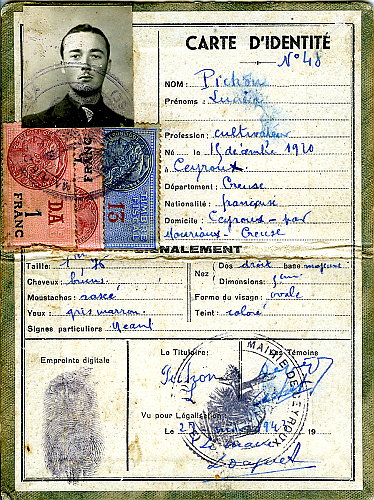 CARTE D'IDENTITÉ
N° 48
NOM: Pichon
Prénoms: Lucien
Profession: cultivateur
Né le 15 décembre 1920
à Ceyroux
Département: Creuse
Nationalité: française
Domicile: Ceyroux - par
Mourioux - Creuse
1 FRANC
DA
FRANC
15
SIGNALEMENT
Taille: 1m 75
Cheveux: bruns
Moustaches: rasé
Yeux: gris marron
Signes particuliers: néant
Nez Dos: droit base moyenne
Dimensions: 5cm
Forme du visage: ovale
Teint: coloré
Empreinte digitale
Le Titulaire: Les Témoins
Pichon
Vu pour Légalisation:
Le 19
MAIRIE DE CEYROUX